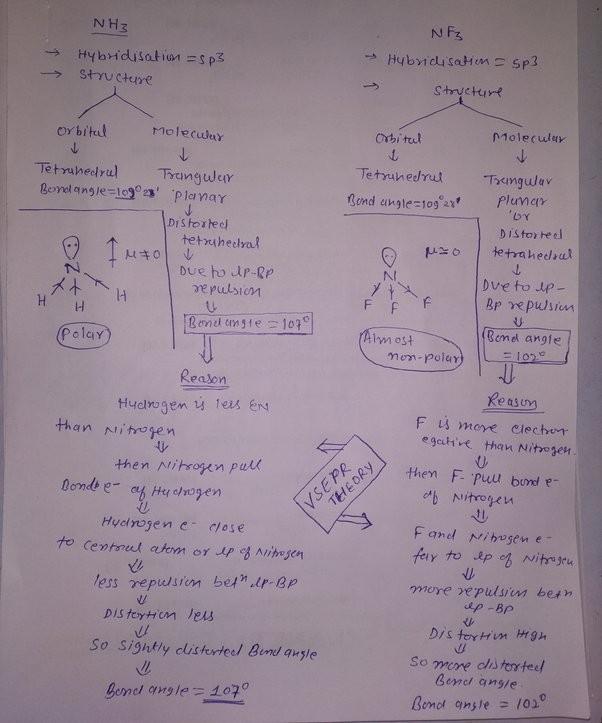 NH3
→ Hybridisation = sp3
→ Structure
Orbital
↓
Tetrahedral
Bond angle = 109° 28'
Molecular
↓
Trangular
planar
↓
Distorted
tetrahedral
↓
Due to lp-BP
repulsion
⇓
Bond angle = 107°
N
H H H
μ ≠ 0
Polar
⇓
Reason
Hydrogen is less EN
than Nitrogen
⇓
then Nitrogen pull
Bond e- of Hydrogen
⇓
Hydrogen e- close
to central atom or lp of Nitrogen
⇓
less repulsion betn lp-BP
⇓
Distortion less
⇓
So Sightly distorted Bond angle
⇓
Bond angle = 107°
VSEPR
THEORY
NF3
→ Hybridisation = sp3
→ Structure
Orbital
↓
Tetrahedral
Bond angle = 109° 28'
Molecular
↓
Trangular
planar
or
Distorted
tetrahedral
↓
Due to lp-
BP repulsion
⇓
Bond angle
= 102°
N
F F F
μ ≃ 0
Almost
non-polar
⇓
Reason
F is more electron
egative than Nitrogen.
⇓
then F- pull bond e-
of Nitrogen
⇓
F and Nitrogen e-
far to lp of Nitrogen
⇓
more repulsion betn
lp-BP
⇓
Distortion High
⇓
So more distorted
Bond angle.
Bond angle = 102°